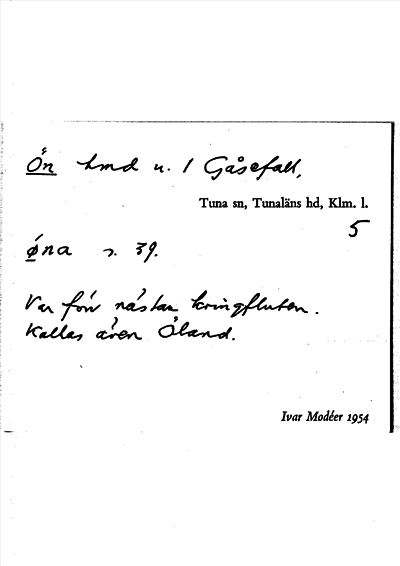 Ön hmd u. 1 Gåsefall,
Tuna sn, Tunaläns hd, Klm. l.
5
øna s. 39.
Var förr nästan kringfluten.
Kallas även Öland.
Ivar Modéer 1954